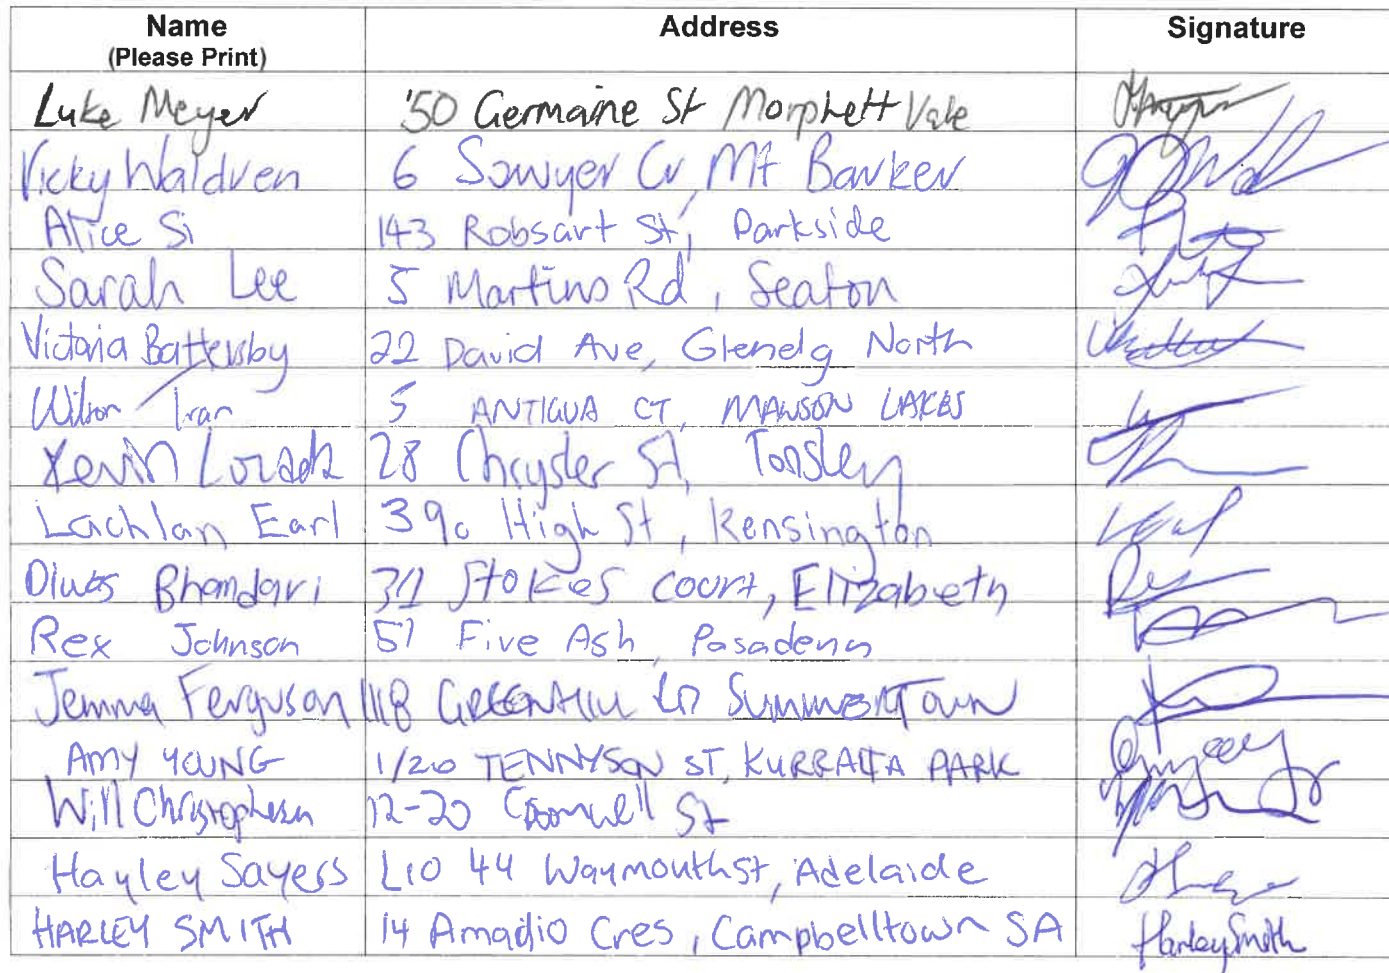 Name Address Signature
(Please Print)
Luke Meyer 50 Germaine St Morphett Vale
Vicky Waldren 6 Sawyer Cr, Mt Barker
Alice Si 143 Robsart St, Parkside
Sarah Lee 5 Martins Rd, Seaton
Victoria Battersby 22 David Ave, Glenelg North
Wilson Tran 5 ANTIGUA CT, MAWSON LAKES
Kevin 28 Chrysler St, Tonsley
Lachlan Earl 39c High St, Kensington
Bhandari 31 Stokes Court, Elizabeth
Rex Johnson 51 Five Ash, Pasadena
Jemma Ferguson 1118 GREENHILL RD SUMMERTOWN
AMY YOUNG 1/20 TENNYSON ST, KURRALTA PARK
Will Christophersen 12-20 Cromwell St
Hayley Sayers L10 44 Waymouth St, Adelaide
HARLEY SMITH 14 Amadio Cres, Campbelltown SA Harley Smith